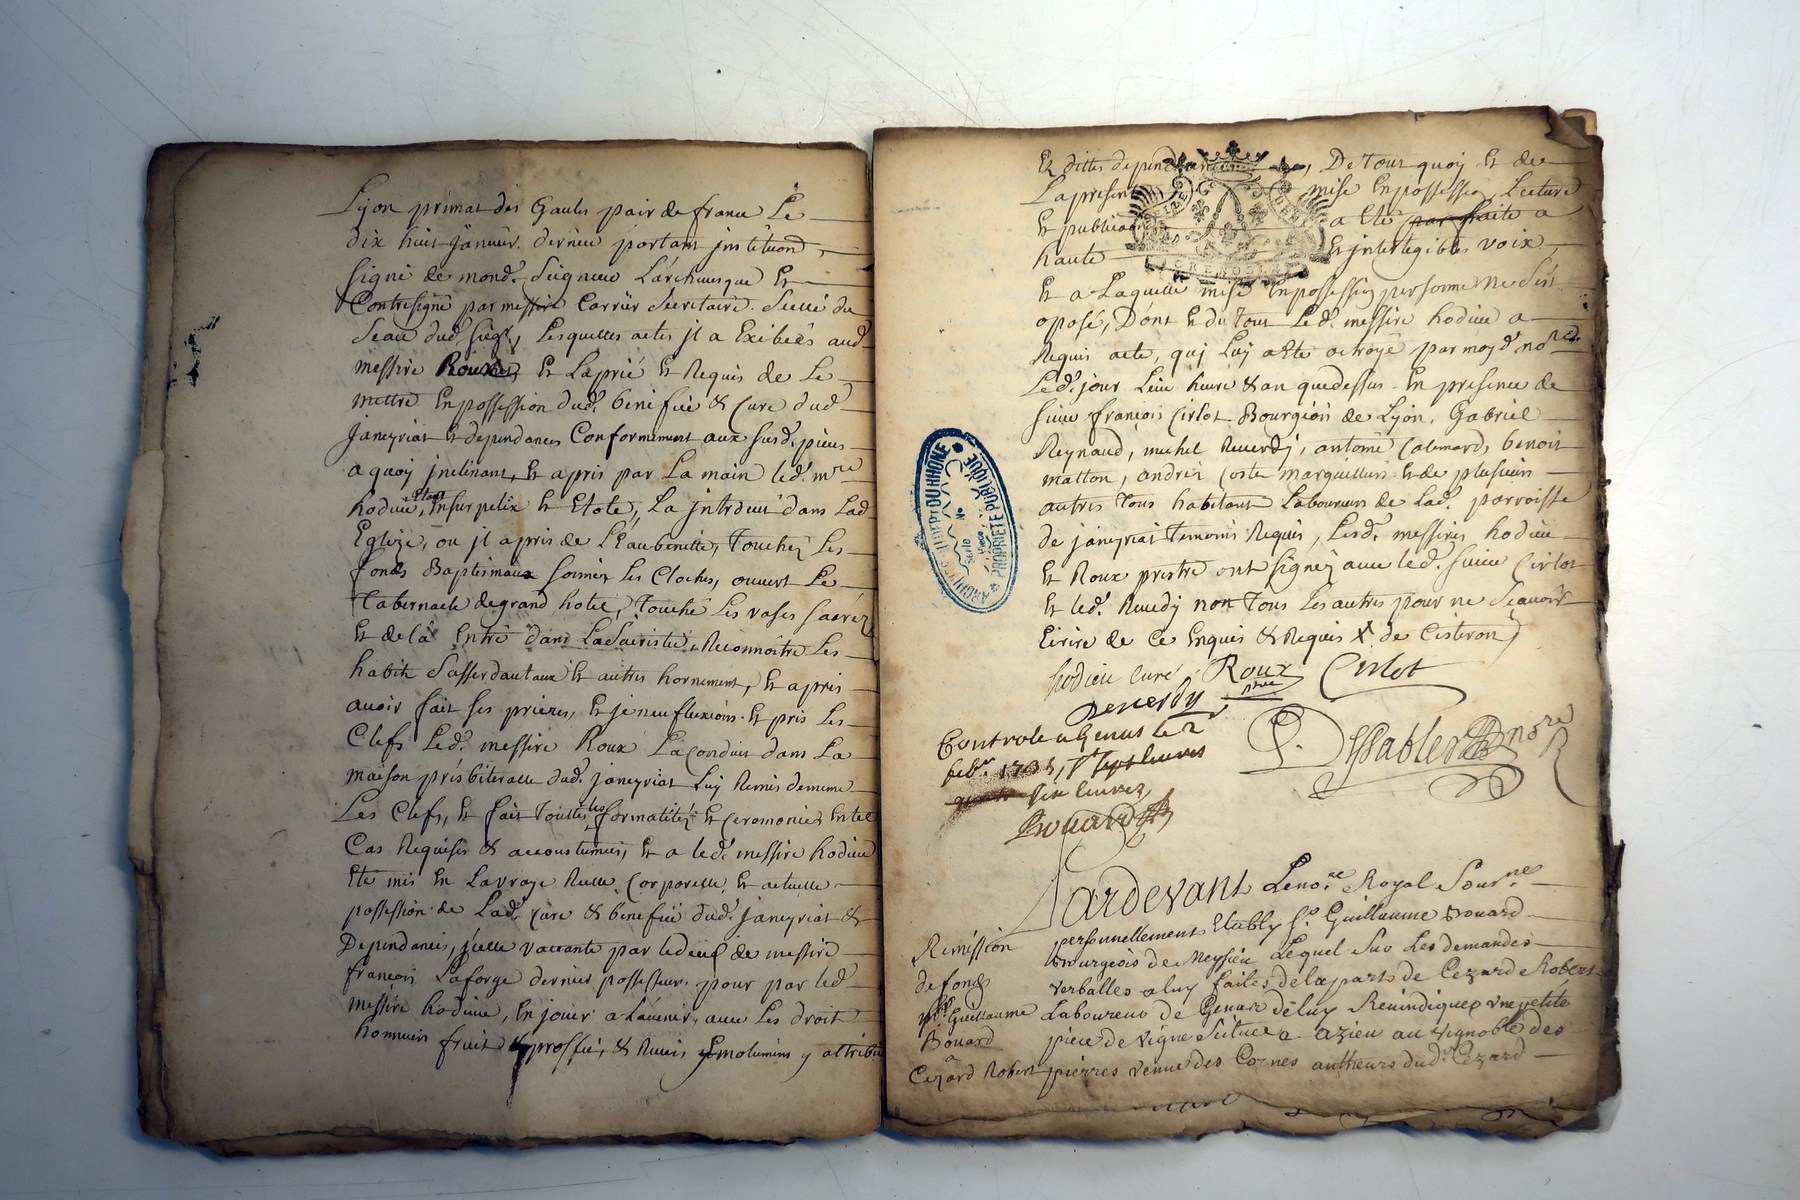 Lyon primat des Gaules pair de france Le
dix huit Janvier dernier portant jnstitution,
signé de mond.^r Seigneur L'archevesque Et
Contresigné par messire Carrier Secretaire. Scellé du
Seau dud. siege, Lesquelles actes jl a Exibées aud.
messire Roux, Et La prié Et Requis de Le
mettre En possession dud. benefice & Cure dud.
Janeyriat Et dependances Conformement aux susd. pieces
a quoy jnclinant, Et a pris par La main led. m^re
hodieu, Etant En surpelix Et Etole, La jntroduit dans Lad.
Eglize, ou jl a pris de L'Eau benitte, Touché Les
fonds Baptismaux sonner Les Cloches, ouvert Le
Tabernacle du grand hotel, Touché Les vases sacréz
Et de là Entré dans La Sacristie, Reconnoitre Les
habits Sasserdautaux Et autres hornement, Et apres
avoir fait ses prieres, Et jeneuflexions. Et pris Les
Clefs Led. messire Roux La Conduit dans La
maison présbiteralle dud. janeyriat Luy Remis de meme
Les Clefs, Et fait Touttes les formalitéz Et Ceremonies En tel
Cas Requises & accoustumés, Et a led. messire hodieu
Eté mis En La vraye Reelle, Corporelle, Et actuelle
possession de Lad. Cure & benefice dud. janeyriat &
Dependances, jcelle vaccante par le deces de messire
francois Laforge dernier possesseur, pour par led.
messire hodieu, En jouir a L'avenir, avec Les droit
honneurs fruit & proffit, & Revenus Emolumens y attribué
Et dittes dependances, De Tout quoy Et de
La presente mise En possession, Lecture
Et publication a Eté par faite a
haute Et jntelegibles voix,
Et a Laquelle mise En possession personne ne s'est
oposé, Dont Et du Tout Led. messire hodieu a
Requis acte, quj Luy a Eté octroyé par moy d. no^re
Led. jour Lieu heure & an que dessus. En presence de
sieur francois Cirlot Bourgeois de Lyon, Gabriel
Reynaud, michel Reverdj, antoine Calemard, benoit
matton, andréi Coste Marguelliers Et de plusieurs
autres Tous habitant Laboureurs de Lad. parroisse
de janeyriat Temoins Requis, Lesd. messires hodieu
Et Roux prestre ont signéz avec led. sieur Cirlot
Et led. Reverdy non Tous Les autres pour ne Scavoir
Ecrire de ce Enquis & Requis X de Cisteron
hodieu curé Roux ptre Cirlot
Reverdy
Despabler no^re
Controle a Genas le 2
feb^er 1705,
six livres,
Bouard
ARCHIVES DEP^T DU RHONE
PROPRIETE PUBLIQUE
Pardevant Le no^re Royal Sous^né
personnellement Etably S^r. Guillaume Bouard
Bourgeois de Meyzieu Lequel Sur Les demandes
verballes a luy faites de la part de Cezard Robert
Laboureur de Genas de luy Revindiquer vne petite
piece de vigne Scituee a azieu au vignoble des
pierres venue des Cornes autheurs dud. Cezard
Remission
de fonds
S^r Guillaume
Bouard
a
Cezard Robert